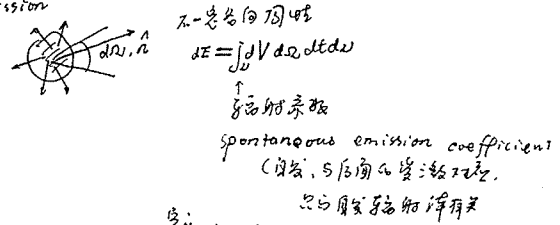 ission
不一定各向同性
dΩ, n̂
dE = j_ν dV dΩ dt dν
↑
辐射系数
spontaneous emission coefficient
(自发, 与后面的受激对应,
只与自发辐射有关